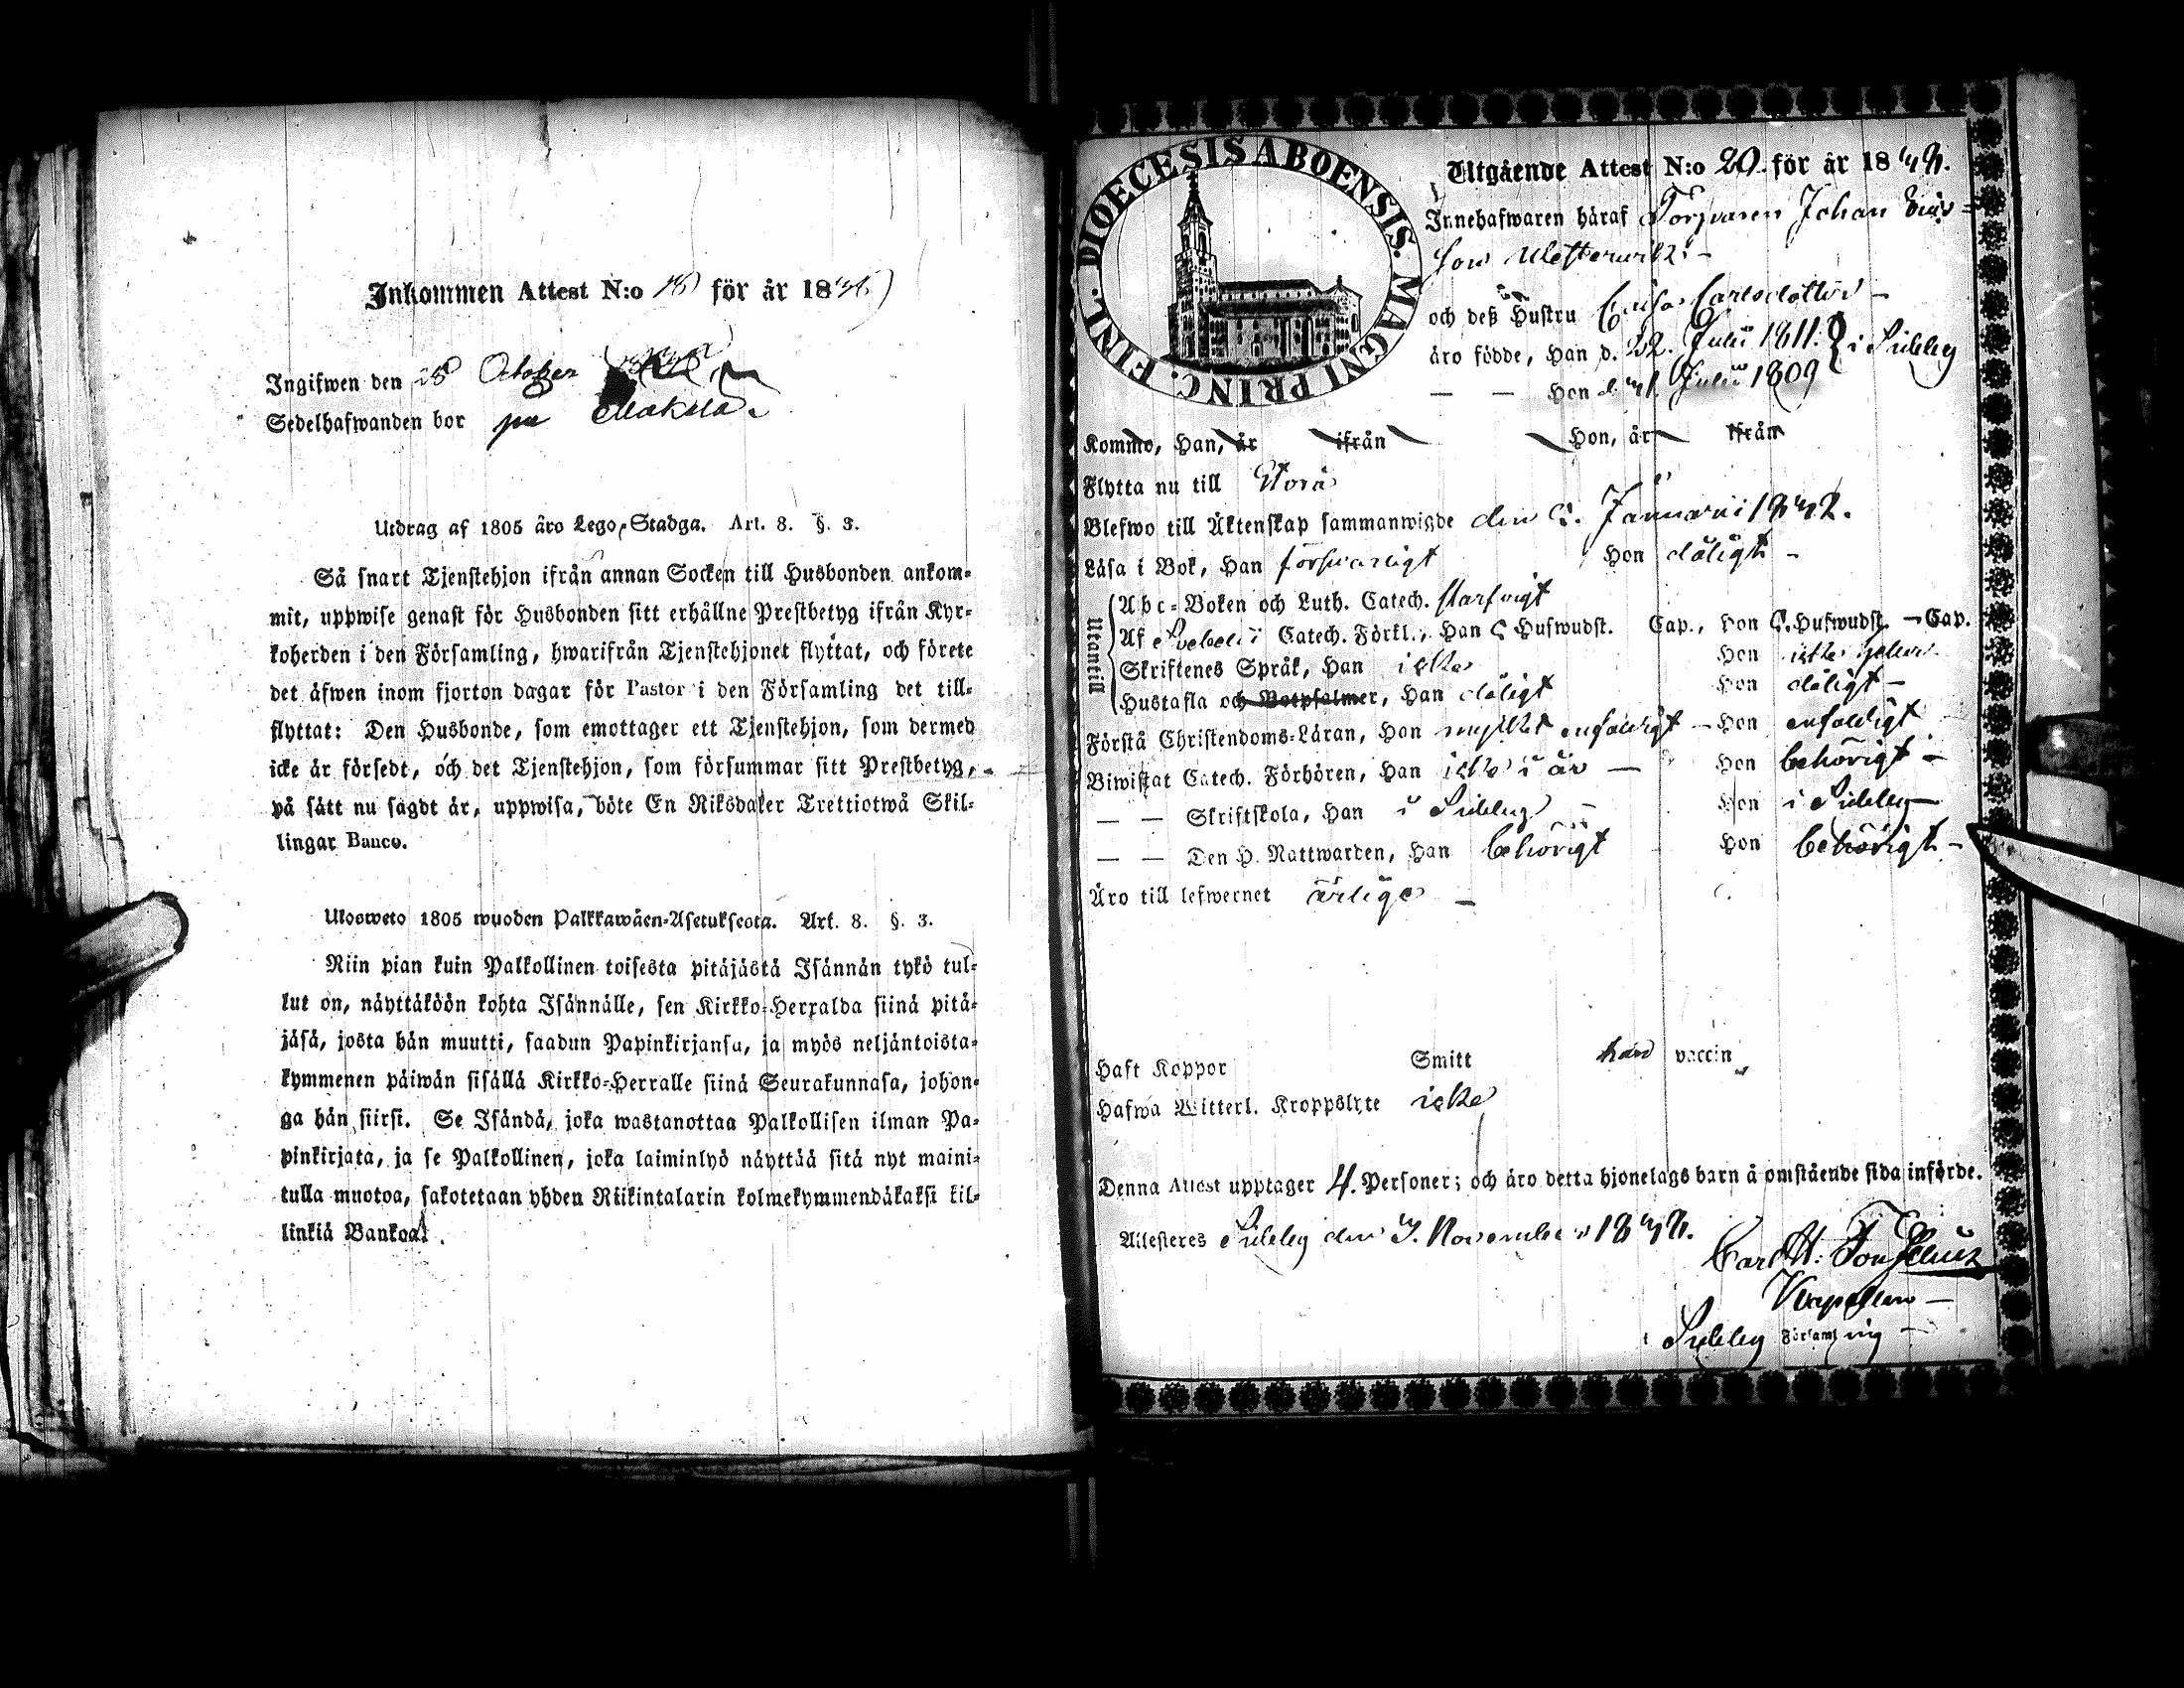 Inkommen Attest N:o 18 för år 18
Ingifwen den 28 October
Sedelhafwanden bor på
Utdrag af 1805 åro Lego-Stadga. Art. 8. §. 3.
Så snart Tjenstehjon ifrån annan Socken till Husbonden ankom-
mit, uppwise genast för Husbonden sitt erhållne Prestbetyg ifrån Kyr-
koherden i den Församling, hwarifrån Tjenstehjonet flyttat, och förete
det äfwen inom fjorton dagar för Pastor i den Församling det till-
flyttat: Den Husbonde, som emottager ett Tjenstehjon, som dermed
icke är försedt, och det Tjenstehjon, som försummar sitt Prestbetyg,
på sätt nu sagdt är, uppwisa, böte En Riksdaler Trettiotwå Skil-
lingar Banco.
Ulosweto 1805 wuoden Palkkawäen-Asetuksesta. Art. 8. §. 3.
Niin pian kuin Palkollinen toisesta pitäjästä Isännän tykö tul-
lut on, näyttäköön kohta Isännälle, sen Kirkko-Herralda siinä pitä-
jäsä, josta hän muutti, saadun Papinkirjansa, ja myös neljäntoista-
kymmenen päiwän sisällä Kirkko-Herralle siinä Seurakunnasa, johon-
ga hän siirsi. Se Isändä, joka wastanottaa Palkollisen ilman Pa-
pinkirjata, ja se Palkollinen, joka laiminlyö näyttää sitä nyt maini-
tulla muotoa, sakotetaan yhden Riikintalarin kolmekymmendäkaksi kil-
linkiä Bankoa.
DIOECESIS ABOENSIS. MAGNI PRINC. FINL.
Utgående Attest N:o 20. för år 1848.
Innehafwaren häraf Torparen Johan
son Westerwik
och deß Hustru Caisa Carlsdotter
äro födde, Han d. 22. Julii 1811. i Sideby
— — Hon d. Julii 1809
Kommo, Han, år ifrån Hon, år ifrån
Flytta nu till Storå
Blefwo till Äktenskap sammanwigde den Januarii 1842.
Läsa i Bok, Han försvarligt Hon dåligt
Utantill
Abc-Boken och Luth. Catech. slarfwigt
Af Svebelii Catech. Förkl., Han 5 Hufwudst. Cap., Hon 5. Hufwudst. — Cap.
Skriftenes Språk, Han icke Hon icke heller
Hustafla och Botpsalmer, Han dåligt Hon dåligt
Förstå Christendoms-Läran, Han mycket enfaldigt Hon enfaldigt
Biwistat Catech. Förhören, Han icke i år Hon behörigt
— — Skriftskola, Han i Sideby Hon i Sideby
— — Den H. Nattwarden, Han behörigt Hon behörigt
Äro till lefwernet ärlige
Haft Koppor Smitt han vaccin
Hafwa Witterl. Kroppslyte icke
Denna Attest upptager 4. Personer; och äro detta hjonelags barn å omstående sida införde.
Attesteres Sideby den 3. November 1848.
Carl H.
Kapellan
i Sideby Församling